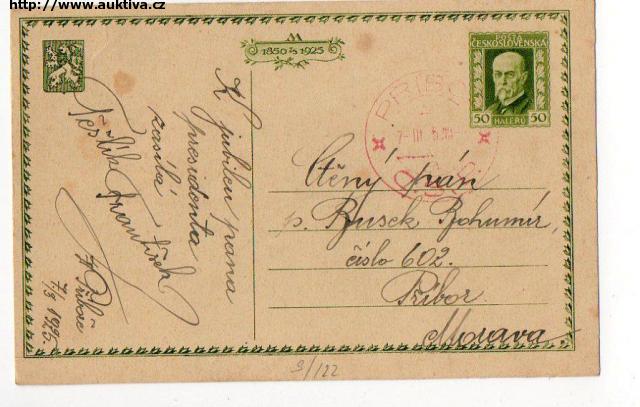 http://www.auktiva.cz
1850 7/3 1925
POŠTA
ČESKOSLOVENSKÁ
50 HALÉŘŮ 50
PŘÍBOR
7-III
K jubileu pana
presidenta
zasílá
František
v Příboře
7/3 1925
Ctěný pán
p. Busek Bohumír,
číslo 602.
Příbor.
Morava.
9/122